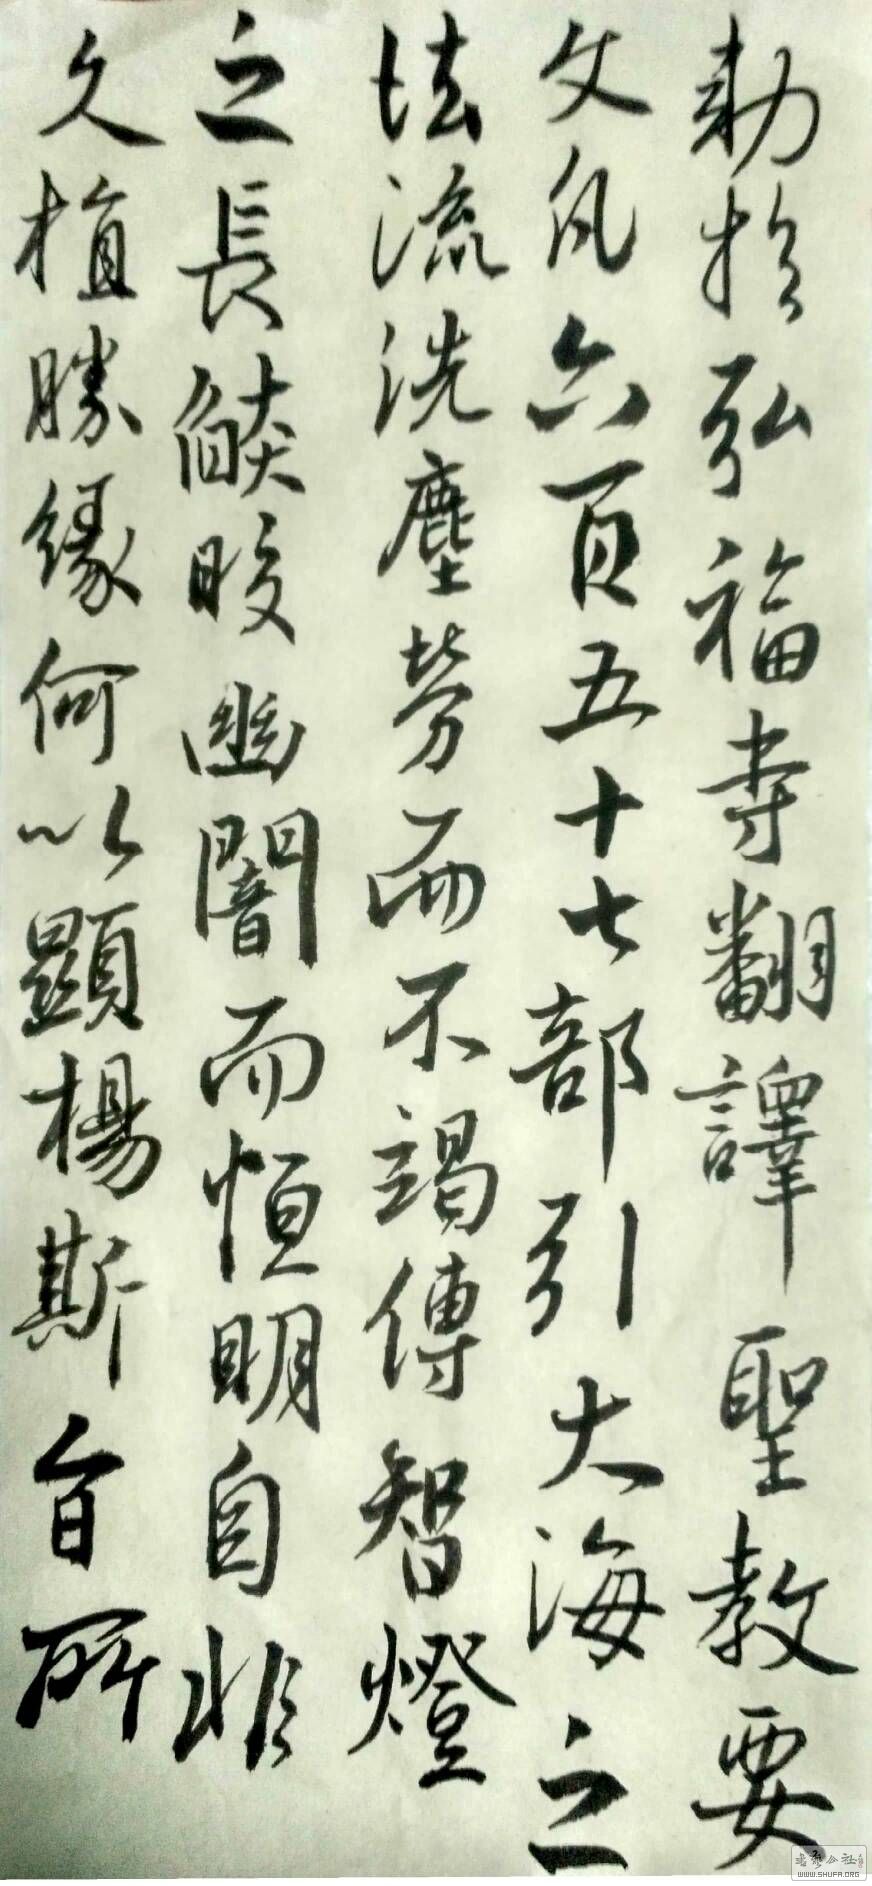 勅於弘福寺翻譯聖教要
文凡六百五十七部引大海之
法流洗塵勞而不竭傳智燈
之長燄皎幽闇而恒明自非
久植勝緣何以顯楊斯旨所
WWW.SHUFA.ORG